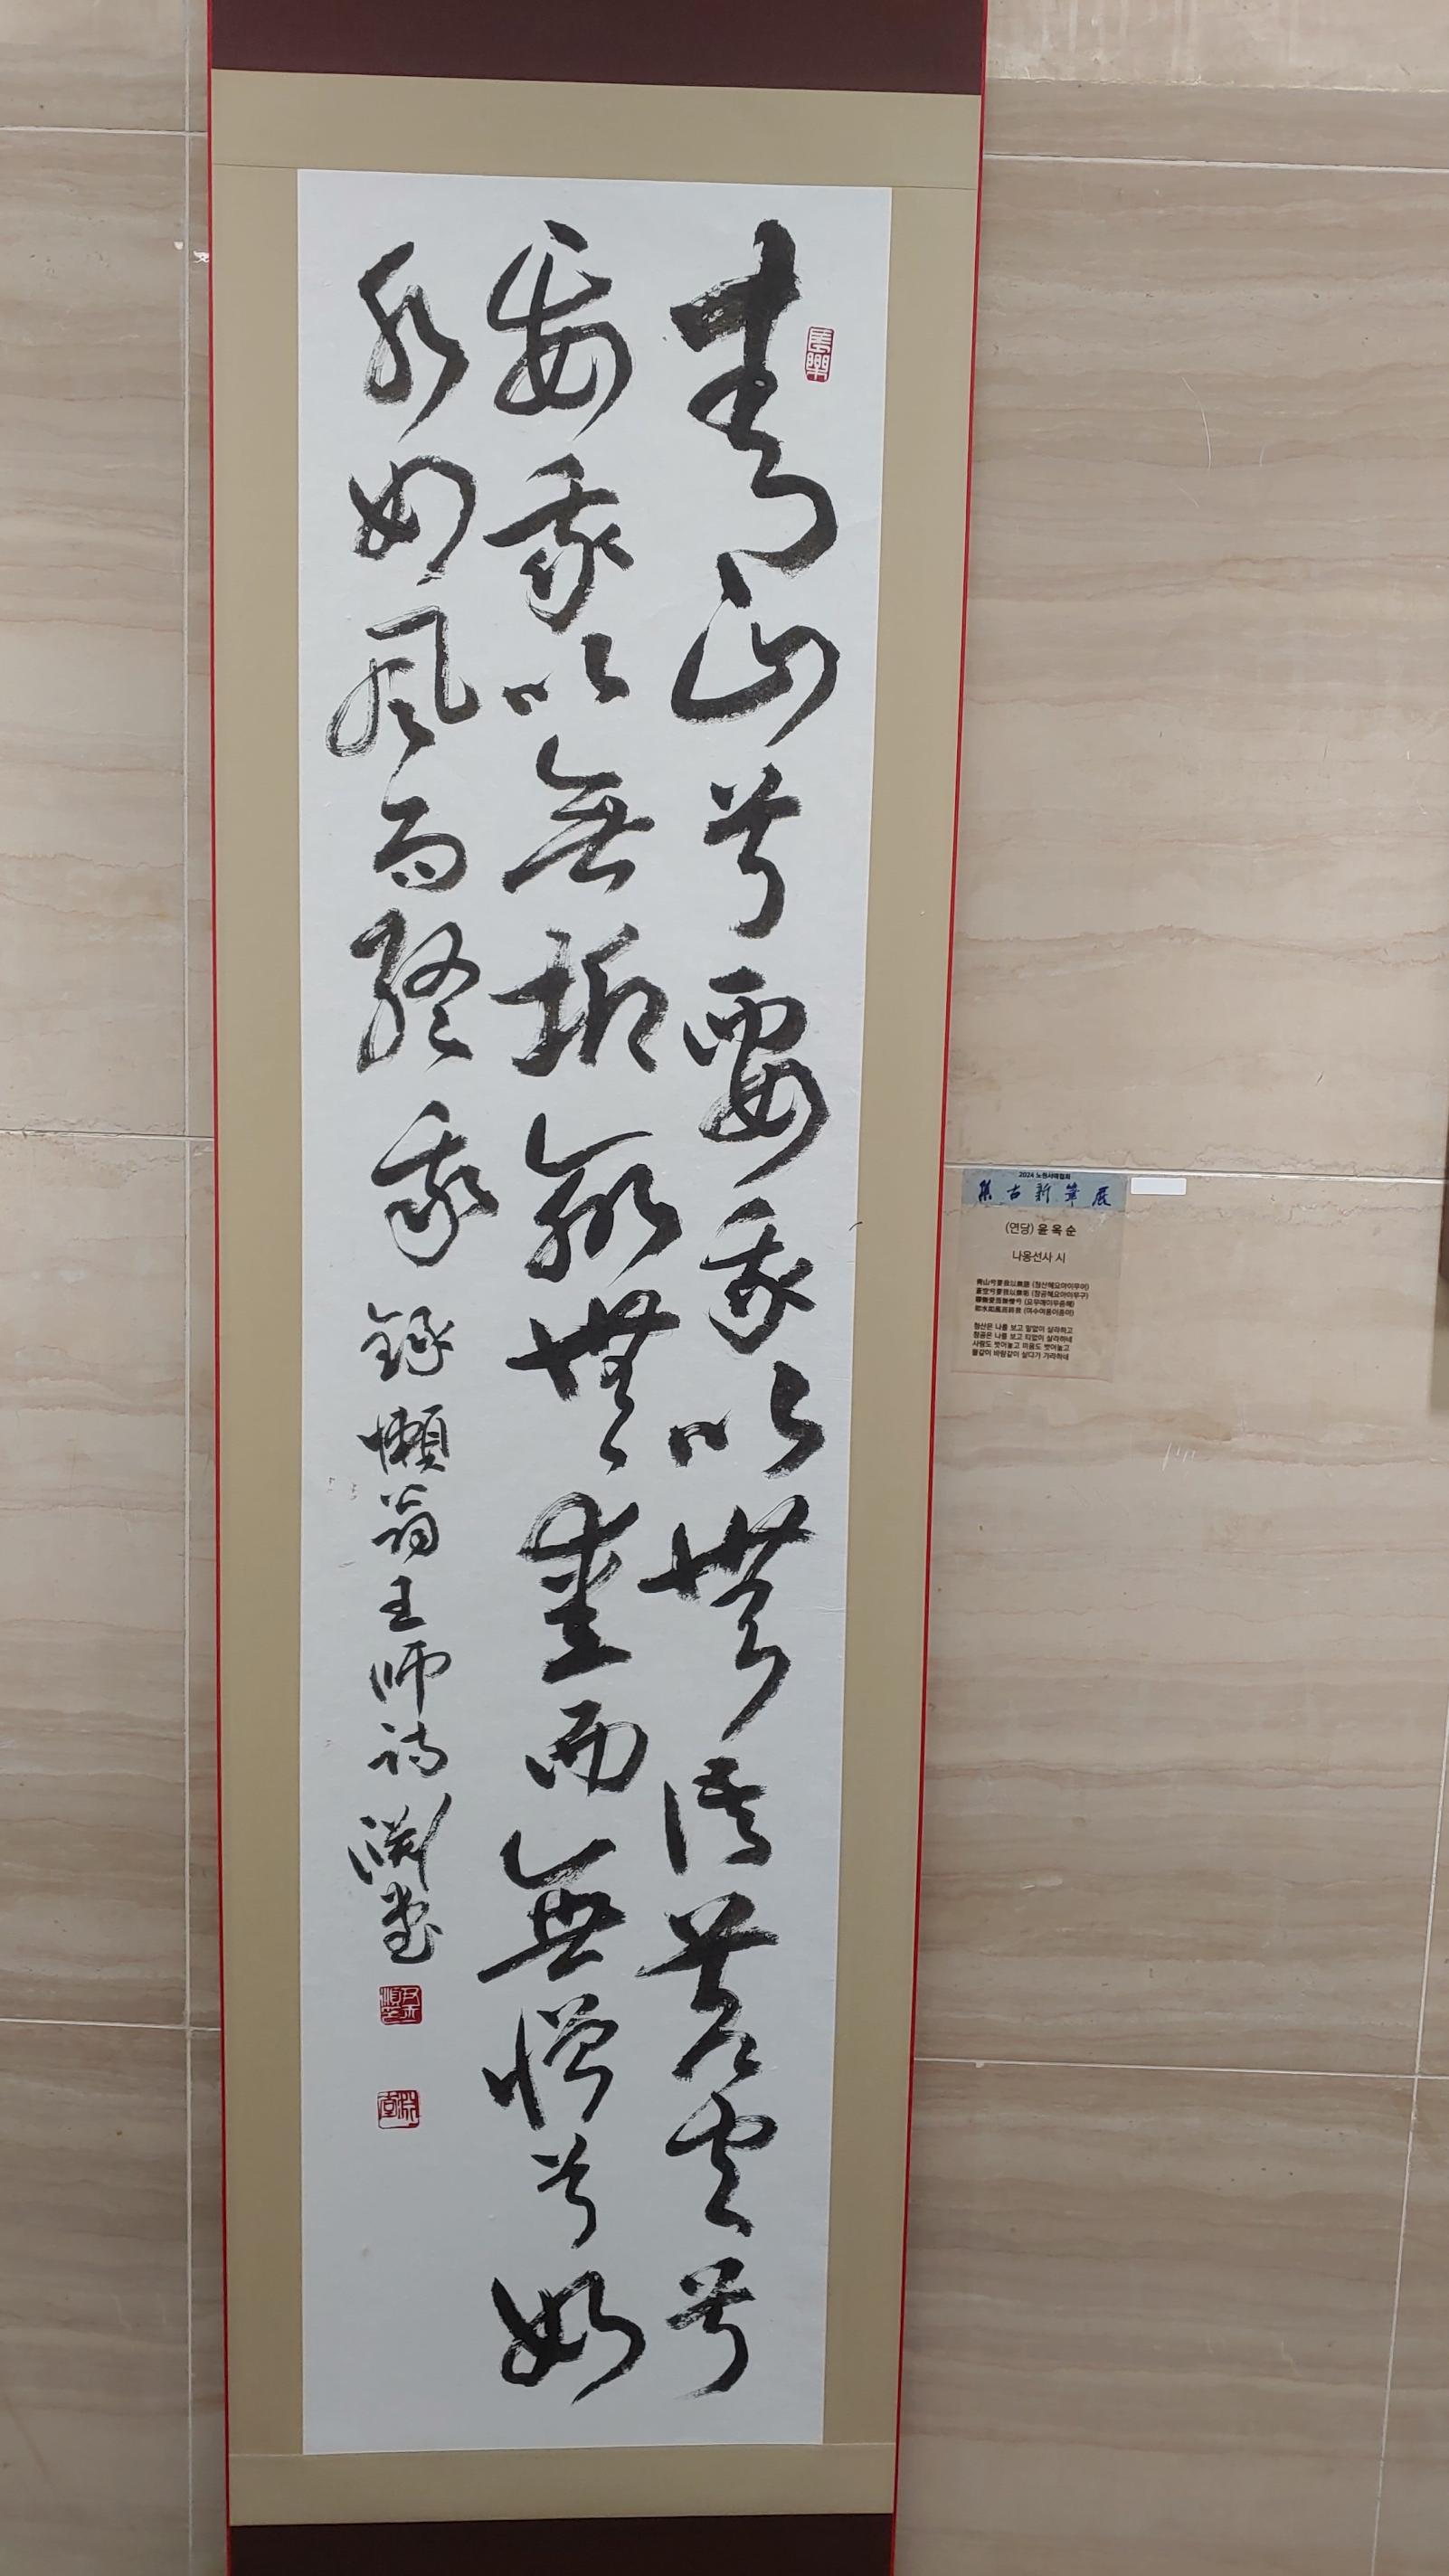 青山兮要我以無語蒼空兮
要我以無垢聊無愛而無憎兮如
水如風而終我 錄懶翁王師詩 淵堂
長樂
淵堂
2024 노원서예협회
集古新筆展
(연당) 윤옥순
나옹선사 시
靑山兮要我以無語 (청산혜요아이무어)
蒼空兮要我以無垢 (창공혜요아이무구)
聊無愛而無憎兮 (요무애이무증혜)
如水如風而終我 (여수여풍이종아)
청산은 나를 보고 말없이 살라하고
창공은 나를 보고 티없이 살라하네
사랑도 벗어놓고 미움도 벗어놓고
물같이 바람같이 살다가 가라하네